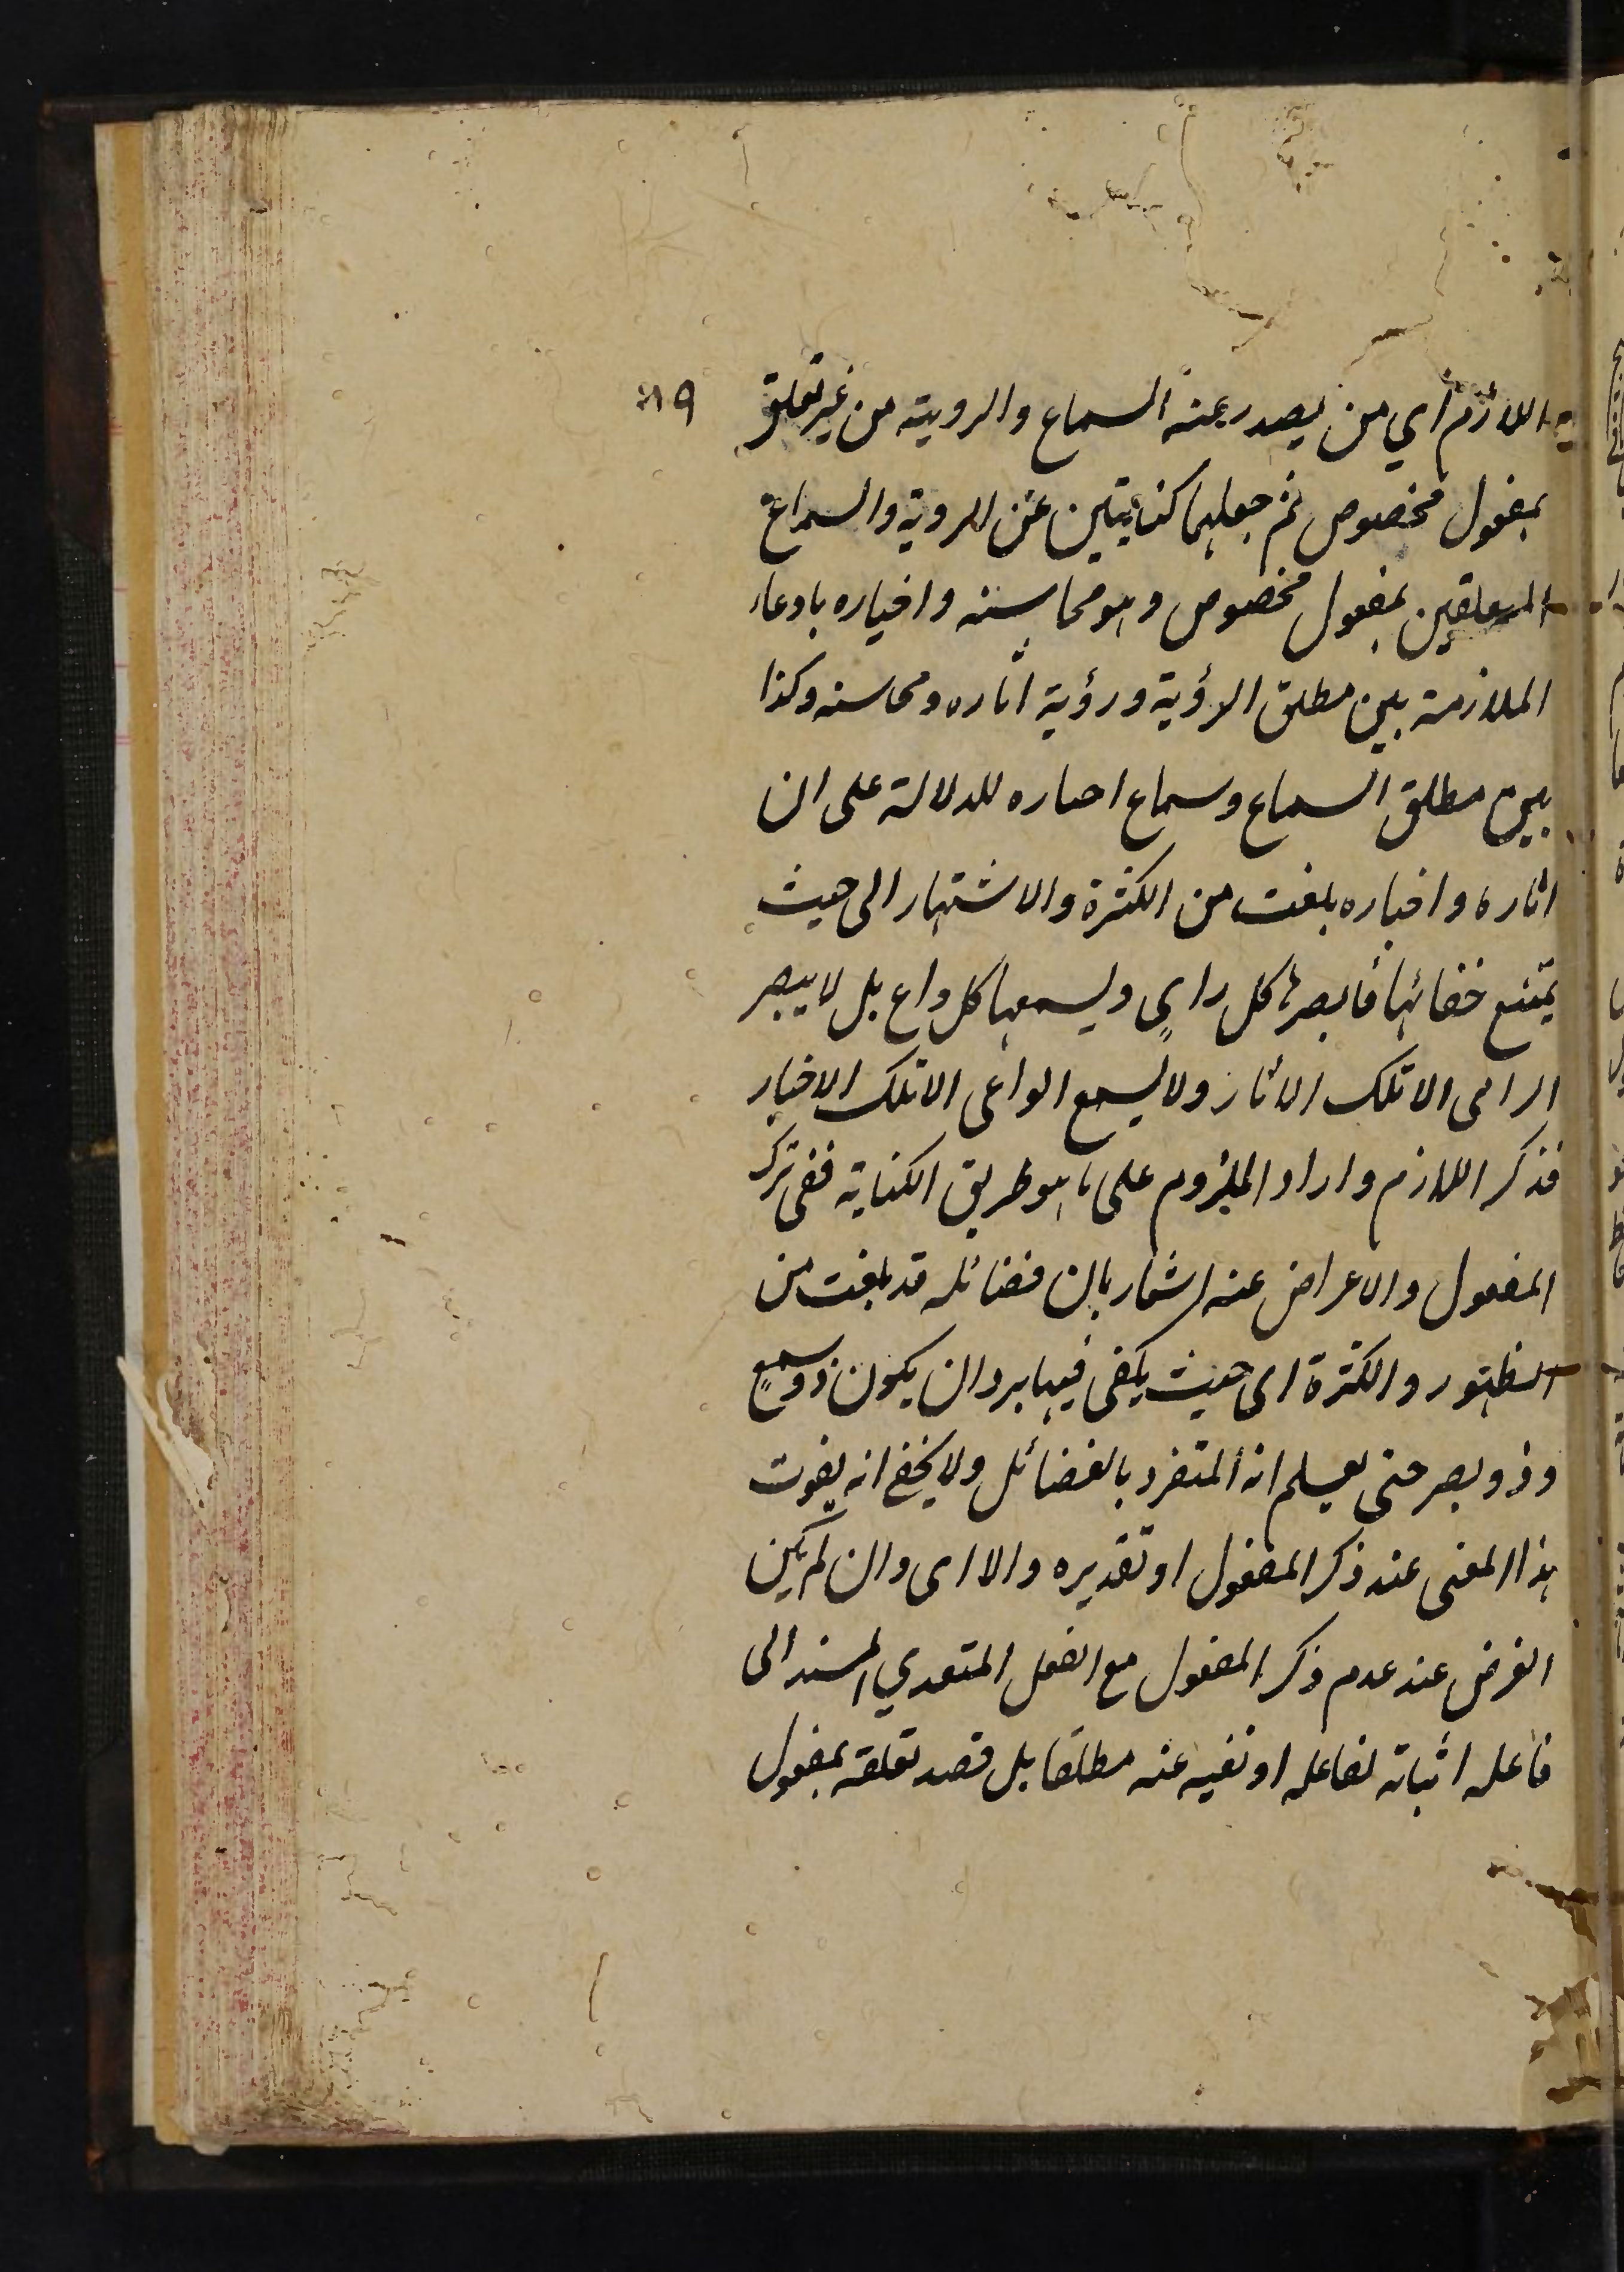 اللازم أي من يصدر عنه السماع والروية من غير تعلق
بمفعول مخصوص ثم جعلهما كنايتين عن الروية والسماع
المتعلقين بمفعول مخصوص وهو محاسنه واخباره بادعاء
الملازمة بين مطلق الرؤية ورؤية اثاره ومحاسنه وكذا
بين مطلق السماع وسماع اخباره للدلالة على ان
اثاره واخباره بلغت من الكثرة والاشتهار الى حيث
يمتنع خفائها فابصرها كل راي ويسمعها كل واع بل لا يبصر
الرائى الا تلك الاثار ولا يسمع الواعى الا تلك الاخبار
فذكر اللازم واراد الملزوم على ما هو طريق الكناية ففى ترك
المفعول والاعراض عنه اشعار بان فضائله قد بلغت من
الظهور والكثرة الى حيث يكفى فيها مجرد ان يكون ذو سمع
وذو بصر حتى يعلم انه المتفرد بالفضائل ولا يخفى انه يفوت
هذا المعنى عند ذكر المفعول او تقديره والا اى وان لم يكن
الغرض عند عدم ذكر المفعول مع الفعل المتعدي المسند الى
فاعله اثباته لفاعله او نفيه عنه مطلقا بل قصد تعلقه بمفعول